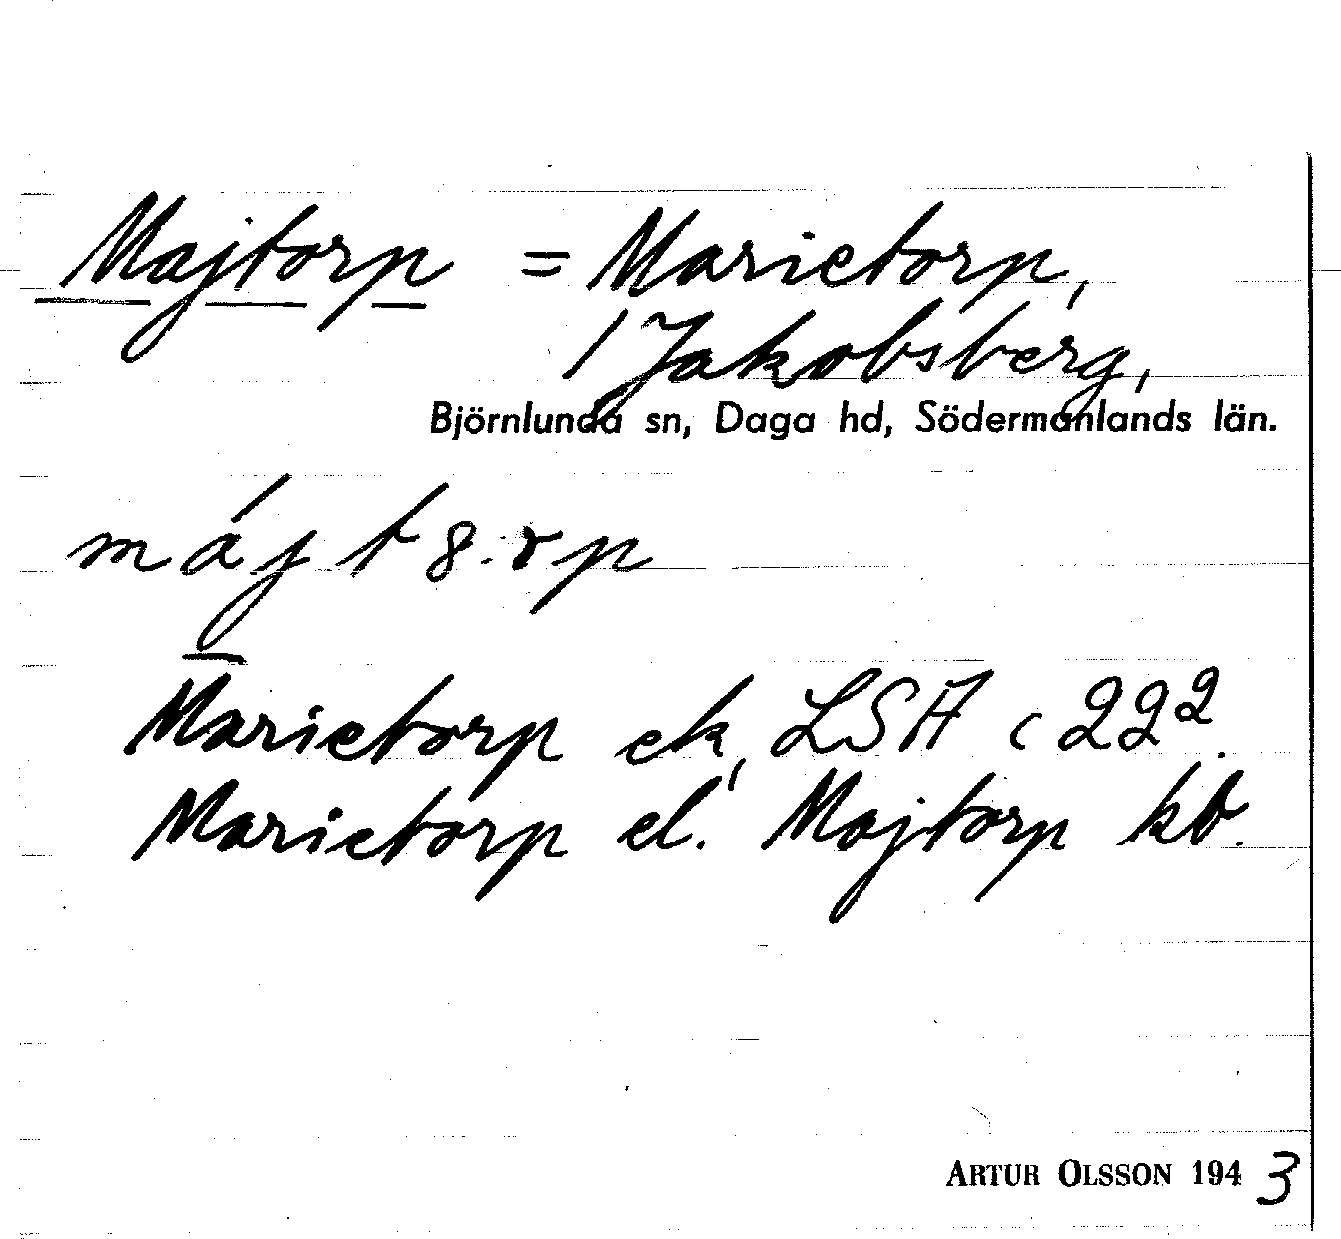 Majtorp = Marietorp,
/ Jakobsberg,
Björnlunda sn, Daga hd, Södermanlands län.
máj t 8.rp
Marietorp ek, LSA c 22²
Marietorp el. Majtorp kb.
ARTUR OLSSON 1943